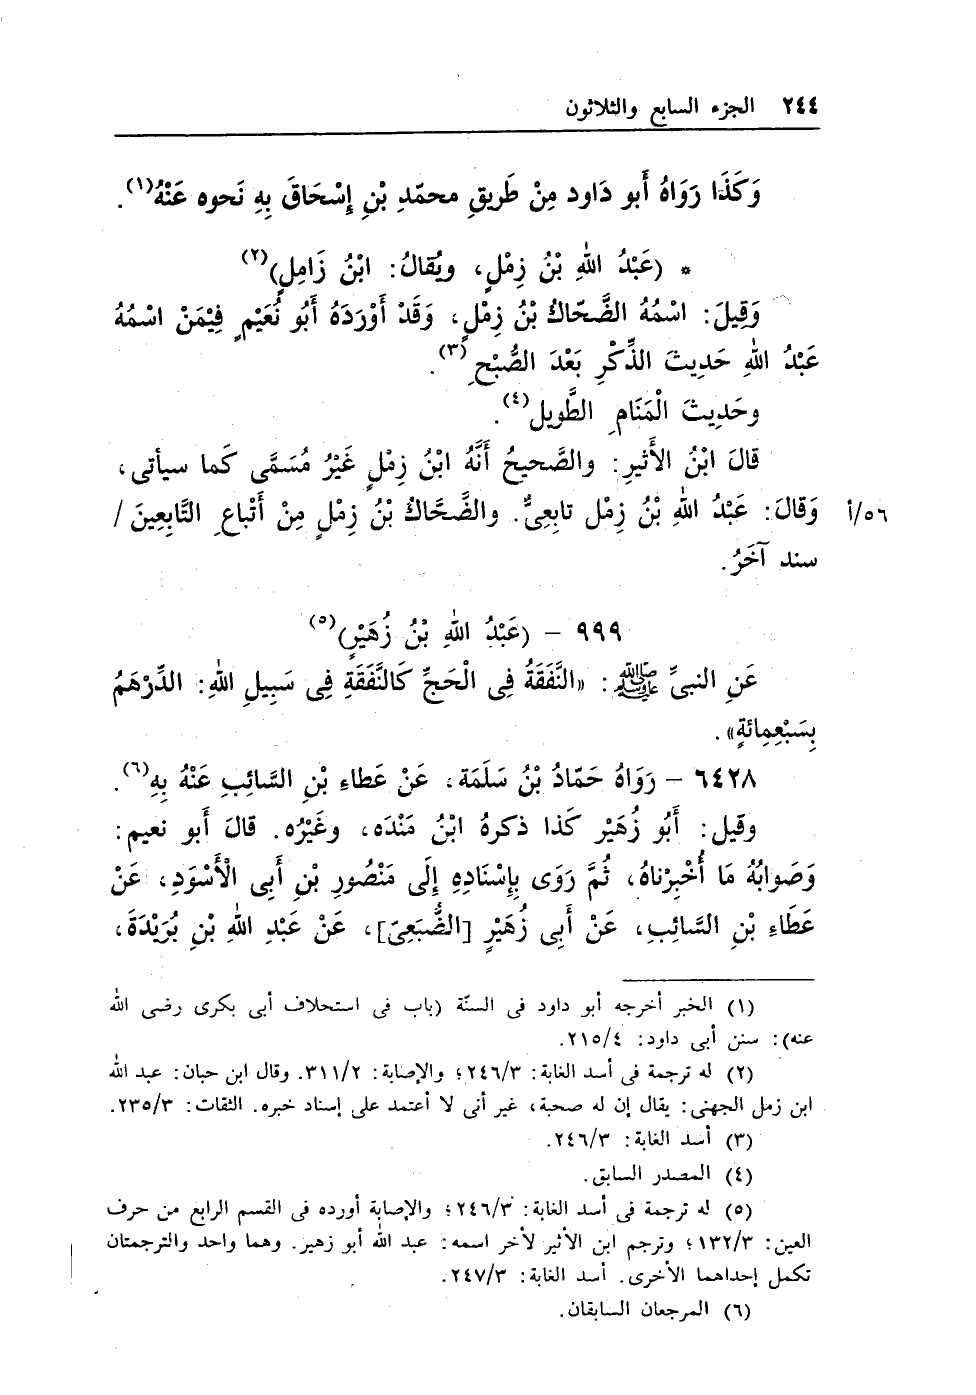 ٢٤٤ الجزء السابع والثلاثون
وَكَذَا رَوَاهُ أَبو دَاود مِنْ طَرِيقِ محمّدِ بْنِ إِسْحَاقَ بِهِ نَحوه عَنْهُ(١).
* (عَبْدُ اللهِ بْنُ زِمْلٍ، ويُقالُ: ابْنُ زَامِلٍ)(٢)
وَقِيلَ: اسْمُهُ الضَّحّاكُ بْنُ زِمْلٍ، وَقَدْ أَوْرَدَهُ أَبُو نُعَيْمٍ فِيْمَنْ اسْمُهُ
عَبْدُ اللهِ حَدِيثَ الذِّكْرِ بَعْدَ الصُّبْحِ(٣).
وحَدِيثَ الْمَنَامِ الطَّويل(٤).
قالَ ابْنُ الأثيرِ: والصَّحيحُ أَنَّهُ ابْنُ زِمْلٍ غَيْرُ مُسَمَّى كَما سيأتى،
٥٦/أ وَقَالَ: عَبْدُ اللهِ بْنُ زِمْل تابعِىٌّ. والضَّحَّاكُ بْنُ زِمْلٍ مِنْ أَتْباعِ التَّابِعِينَ /
سند آخَرُ.
٩٩٩ – (عَبْدُ اللهِ بْنُ زُهَيْرٍ)(٥)
عَنِ النبىِّ ﷺ: «النَّفَقَةُ فِى الْحَجِّ كَالنَّفَقَةِ فِى سَبِيلِ اللهِ: الدِّرْهَمُ
بِسَبْعِمِائةٍ».
٦٤٢٨ – رَوَاهُ حَمّادُ بْنُ سَلَمَة، عَنْ عَطاءِ بْنِ السَّائِبِ عَنْهُ بِهِ(٦).
وقيل: أَبُو زُهَيْر كَذا ذكرهُ ابْنُ مَنْدَه، وغَيْرُه. قالَ أَبو نعيم:
وَصَوابُهُ مَا أُخْبِرْناهُ، ثُمَّ رَوَى بِإسْنَادِهِ إِلَى مَنْصُورِ بْنِ أَبِى الْأَسْوَدِ، عَنْ
عَطَاءِ بْنِ السَّائِبِ، عَنْ أَبِى زُهَيْرٍ [الضُّبَعِىّ]، عَنْ عَبْدِ اللهِ بْنِ بُرَيْدَةَ،
(١) الخبر أخرجه أبو داود فى السنّة (باب فى استحلاف أبى بكرى رضى الله
عنه): سنن أبى داود: ٢١٥/٤.
(٢) له ترجمة فى أسد الغابة: ٢٤٦/٣؛ والإصابة: ٣١١/٢. وقال ابن حبان: عبد الله
ابن زمل الجهنى: يقال إن له صحبة، غير أنى لا أعتمد على إسناد خبره. الثقات: ٢٣٥/٣.
(٣) أسد الغابة: ٢٤٦/٣.
(٤) المصدر السابق.
(٥) له ترجمة فى أسد الغابة: ٢٤٦/٣؛ والإصابة أورده فى القسم الرابع من حرف
العين: ١٣٢/٣؛ وترجم ابن الأثير لآخر اسمه: عبد الله أبو زهير. وهما واحد والترجمتان
تكمل إحداهما الأخرى. أسد الغابة: ٢٤٧/٣.
(٦) المرجعان السابقان.